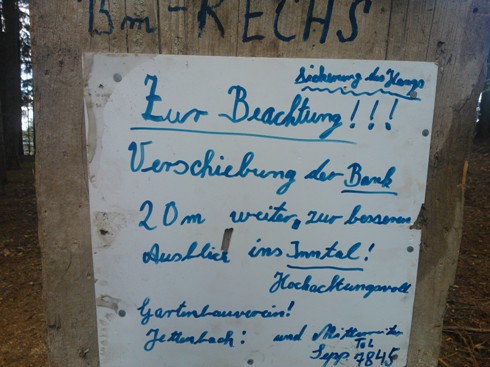 13m-RECHS
Sicherung des Hangs
Zur Beachtung!!!
Verschiebung der Bank
20m weiter, zur besseren
Ausblick ins Inntal!
Hochachtungsvoll
Gartenbauverein!
Jettenbach: und
Tel
Sepp 7845